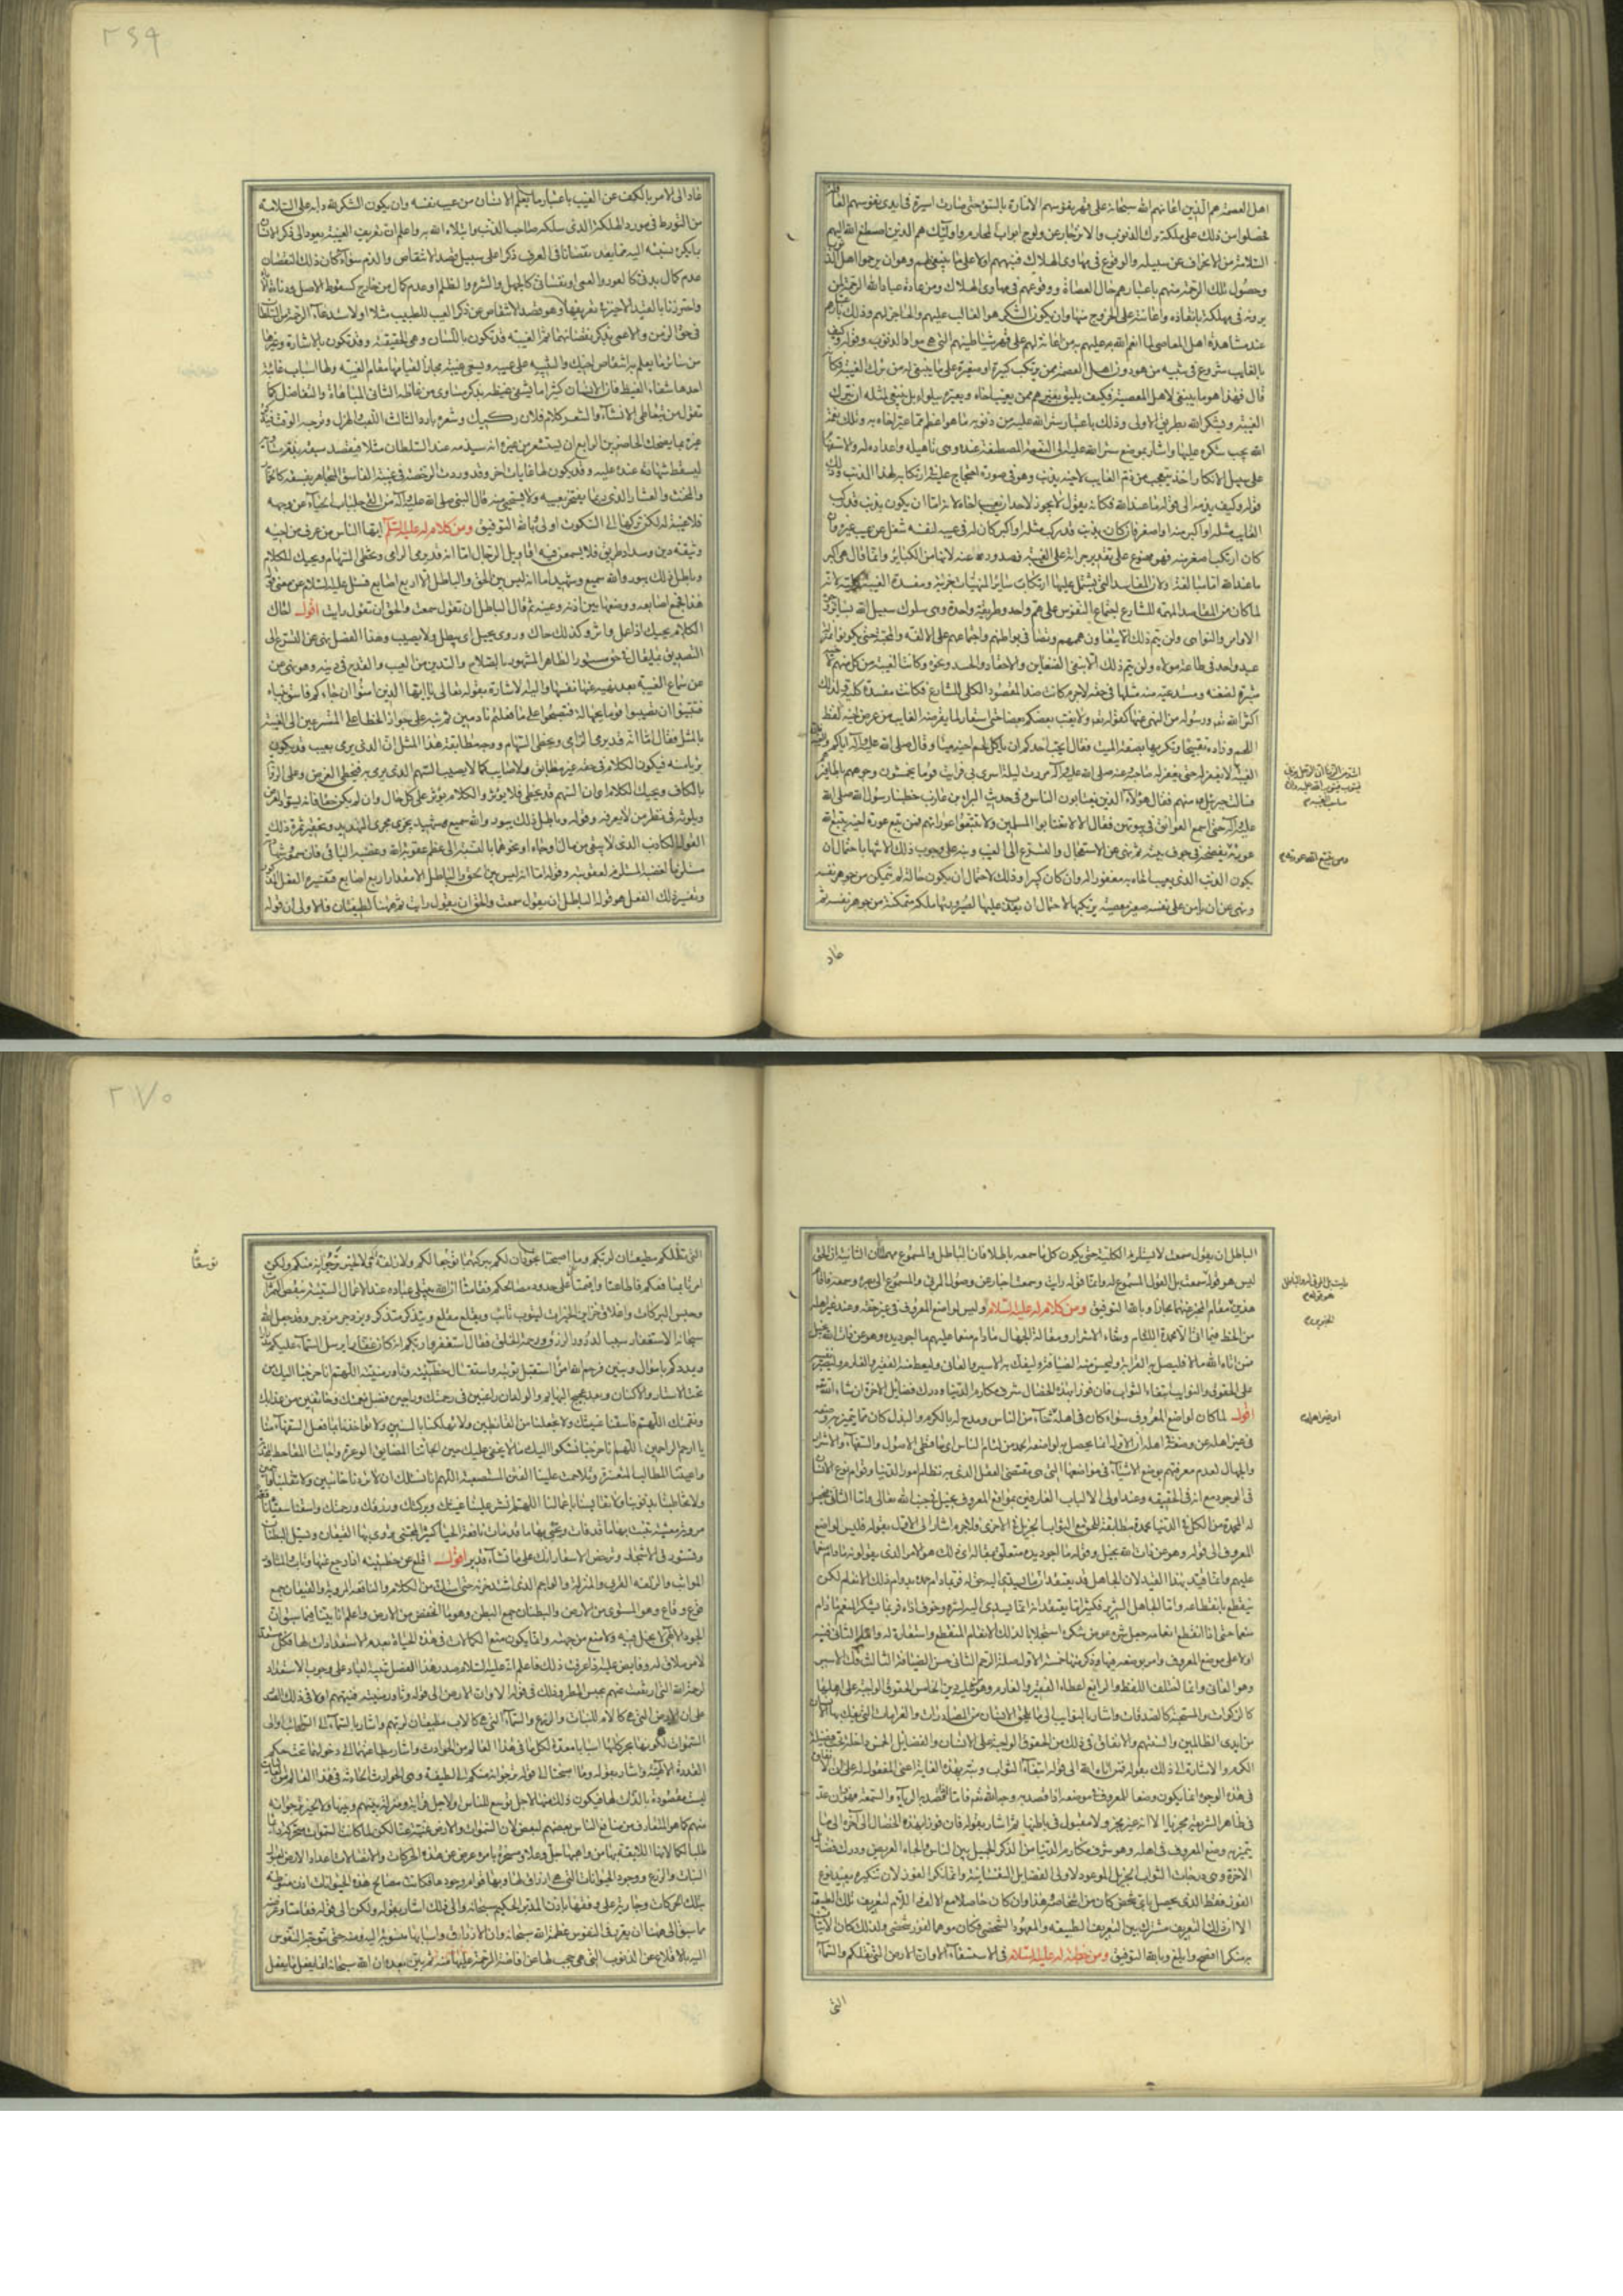 اهل العصمة هم الذين اعانهم الله سبحانه على قهر نفوسهم الامارة بالسوء حتى صارت اسيرة فى ايدى نفوسهم
فحصلوا من ذلك على ملكة ترك الذنوب والانزجار عن ولوج ابواب المحارم واولئك هم الذين اصطنع الله اليهم
السلامة من الانحراف عن سبيله والوقوع فى مهاوى الهلاك فنبههم اولا على ما ينبغى لهم وهو ان يرحموا اهل
وحصول تلك الرحمة منهم باعتبارهم حال العصاة ووقوعهم فى مهاوى الهلاك ومن عادة عباد الله الرحمة لمن
يرونه فى مهلكة بانقاذه واعانته على الخروج منها وان يكون الشكر هو الغالب عليهم والحاجز لهم وذلك
عند مشاهدة اهل المعاصى لما انعم الله به عليهم من اعانة لهم على قهر شياطينهم التى هى مواد الذنوب وقوله
بالغايب شروع فى تنبيه من هو دون اهل العصمة ممن يرتكب كبيرة او صغيرة على ما ينبغى له من ترك الغيبة فكانه
قال فهذا هو ما ينبغى لاهل المعصية فكيف يليق بغيرهم ممن يعيب اخاه ويعيره ببلواه بل ينبغى لمثله ان يترك
الغيبة ويشكر الله بطريق الاولى وذلك باعتبار ستر الله عليه من ذنوبه ما هو اعظم مما عير اخاه به وتلك نعمة
الله يجب شكره عليها واشار بموضع ستر الله عليه الى النعمة المصطنعة عنده وهى تاهيله واعداده له والاستفهام
على سبيل الانكار اخذ يتعجب من ذم الغايب لاخيه بذنب وهو فى صورة احتجاج عليه فى ارتكابه لهذا الذنب وذلك
قوله وكيف يذمه الى قوله ما عند الله فكانه يقول لا يجوز لاحد ان يعيب اخاه لانه اما ان يكون بذنب قد ركب
الغايب مثله او اكبر منه او اصغر فان كان بذنب قد ركب مثله او اكبر كان له فى عيبه لنفسه شغل عن عيب غيره وان
كان ارتكب اصغر منه فهو ممنوع على تقدير جراته على الغيبة وصدورها عنه لانها من الكبائر وانما قال هى اكبر
ما عند الله اما مبالغة ولان المفاسد التى يشتمل عليها ارتكاب سائر المنهيات جزئية ومفسدة الغيبة كلية لانه
لما كان من المقاصد المهمة للشارع اجتماع النفوس على هم واحد وطريقة واحدة وهى سلوك سبيل الله بسائر وجوه
الاوامر والنواهى ولن يتم ذلك الا بتعاون هممهم وتصافى بواطنهم واجتماعهم على الالفة والمحبة حتى يكونوا بمنزلة
عبد واحد فى طاعة مولاه ولن يتم ذلك الا بنفى الضغاين والاحقاد والحسد ونحوه وكانت الغيبة من كل منهم لاخيه
مثيرة لضغنه ومستدعية منه مثلها فى حقه لاجرم كانت ضد المقصود الكلى للشارع فكانت مفسدة كلية ولذلك
اكثر الله تع ورسوله من النهى عنها كقوله تع ولا يغتب بعضكم بعضا حتى استعار لما يقرضه الغايب من عرض اخيه لفظ
اللحم وزاده تقبيحا وتكريها بصفة الميت فقال ايحب احدكم ان ياكل لحم اخيه ميتا وقال صلى الله عليه وآله اياكم والغيبة
الغيبة لا يغفر له حتى يغفر له صاحبه وعنه صلى الله عليه وآله مررت ليلة اسرى بى فرايت قوما يخمشون وجوههم باظافيرهم
فسالت جبرئيل ع منهم فقال هؤلاء الذين يغتابون الناس وفى حديث البراء بن عازب خطبنا رسول الله صلى الله
عليه وآله حتى اسمع العواتق فى بيوتهن فقال الا لا تغتابوا المسلمين ولا تتبعوا عوراتهم فمن تتبع عورة اخيه يتتبع الله
عورته يفضحه فى جوف بيته ثم نهى عن الاستعجال والتسرع الى العيب ونبه على وجوب ذلك الانتهاء باحتمال ان
يكون الذنب الذى يعيب اخاه به مغفورا له وان كان كبيرا وذلك لاحتمال ان يكون حالة لم تتمكن من جوهر نفسه
ونهى عن ان يامن على نفسه صغير معصية يرتكبها لاحتمال ان يعذب عليها لصيرورتها ملكة متمكنة من جوهر نفسه ثم
عاد
٢٦٩
عاد الى الامر بالكف عن العيب باعتبار ما يعلم الانسان من عيب نفسه وان يكون الشكر لله دابه على السلامة
من التورط فى مورد الهلكة الذى سلكه صاحب الذنب وابتلاه الله به واعلم ان تعريف الغيبة يعود الى ذكر الانسان
بما يكره نسبته اليه مما يعد نقصانا فى العرف ذكرا على سبيل قصد الانتقاص والذم سواء كان ذلك النقصان
عدم كمال بدنى كالعور والعمى او نفسانى كالجهل والشره والظلم او عدم كمال من خارج كسقوط الاصل ودناءة
واحترزنا بالقيد الاخير فى تعريفها وهو قصد الانتقاص عن ذكر العيب للطبيب مثلا او لاستدعاء الرحمة من السلطان
فى حق الزمن والاعمى بذكر نقصانهما ثم الغيبة قد تكون باللسان وهى الحقيقة وقد تكون بالاشارة وغيرها
من سائر ما يعلم به انتقاص اخيك والتنبيه على عيبه ويسمى غيبة مجازا لقيامها مقام الغيبة ولها اسباب غائية
احدها شفاء الغيظ فان الانسان كثيرا ما يشفى غيظه بذكر مساوى من غاظه الثانى المباهاة والتفاضل كما
تقول من يتعاطى الانشاء والشعر كلام فلان ركيك وشعره بارد الثالث اللعب والهزل وتزجية الوقت فيذكر
غيره بما يضحك الحاضرين الرابع ان يستشعر من غيره انه سيذمه عند السلطان مثلا فيقصد سبقه بذكر مساويه
ليسقط شهادته عنده عليه وقد يكون لها غايات اخر وقد وردت الرخصة فى غيبة الفاسق المتجاهر بفسقه كالخمار
والمخنث والعشار الذى ربما يفتخر بعيبه ولا يستحى منه قال النبى صلى الله عليه وآله من القى جلباب الحياء عن وجهه
فلا غيبة له لكن تركها الى السكوت اولى وبالله التوفيق ومن كلام له عليه السلم ايها الناس من عرف من اخيه
وثيقة دين وسداد طريق فلا يسمعن فيه اقاويل الرجال اما انه قد يرمى الرامى وتخطى السهام ويحيك الكلام
وباطل ذلك يبور والله سميع وشهيد اما انه ليس بين الحق والباطل الا اربع اصابع فسئل عليه السلام عن معنى قوله
هذا فجمع اصابعه ووضعها بين اذنه وعينه ثم قال الباطل ان تقول سمعت والحق ان تقول رايت اقول احاك
الكلام يحيك اذا عمل واثر وكذلك حاك وروى يحيل اى يبطل ولا يصيب وهذا الفصل نهى عن التسرع الى
التصديق بما يقال فى حق مستور الظاهر المشهور بالصلاح والتدين من العيب والقدح فى دينه وهو نهى عن
عن سماع الغيبة بعد نهيه عنها نفسها واليه الاشارة بقوله تعالى يا ايها الذين امنوا ان جاءكم فاسق بنباء
فتبينوا ان تصيبوا قوما بجهالة فتصبحوا على ما فعلتم نادمين ثم نبه على جواز الخطا على المتسرعين الى الغيبة
بالمثل فقال اما انه قد يرمى الرامى وتخطى السهام ووجه مطابقة هذا المثل ان الذى يرمى بعيب قد يكون
بريا منه فيكون الكلام فى حقه غير مطابق ولا صايب كما لا يصيب السهم الذى يرمى به فيخطى الغرض وعلى الرواية
بالكاف ويحيك الكلام اى ان السهم قد يخطى فلا يؤثر والكلام يؤثر على كل حال وان لم يكن حقا فانه يسود العرض
ويلوثه فى نظر من لا يعرفه وقوله وباطل ذلك يبور والله سميع وشهيد يجرى مجرى التهديد وتحقير ثمرة ذلك
القول الكاذب الذى لا يبقى من مال او جاه او نحوهما بالنسبة الى عظم عقوبة الله وغضبه الباقى فان سمعه وشهادته
مستلزمان لغضبه المستلزم لعقوبته وقوله اما انه ليس بين الحق والباطل الا مقدار اربع اصابع فتفسيره الفعل المذكور
وتفسير ذلك الفعل هو قوله الباطل ان يقول سمعت والحق ان يقول رايت ثم هنا لطيفتان فالاولى ان قوله
الباطل ان يقول سمعت لا يستلزم الكلية حتى يكون كل ما سمعه باطلا فان الباطل والمسموع مهملان الثانية ان الحق
ليس هو قوله سمعت بل القول المسموع له وانما قوله رايت وسمعت اخبار عن وصول المرئى والمسموع الى بصره وسمعه فاقام
هذين مقام المخبر عنهما مجازا وبالله التوفيق ومن كلام له عليه السلام وليس لواضع المعروف فى غير حقه وعند غير اهله
من الحظ فيما اتى الا محمدة اللئام وثناء الاشرار ومقالة الجهال مادام منعما عليهم ما اجود يده وهو عن ذات الله بخيل
فمن اتاه الله مالا فليصل به القرابة وليحسن منه الضيافة وليفك به الاسير والعانى وليعط منه الفقير والغارم وليصبر نفسه
على الحقوق والنوايب ابتغاء الثواب فان فوزا بهذه الخصال شرف مكارم الدنيا ودرك فضايل الاخرة ان شاء الله
اقول لما كان لواضع المعروف سواء كان فى اهله ثناء من الناس ومدح له بالكرم والبذل كان مما يتميز به وضعه
فى غير اهله عن وضعه فى اهله ان الاول انما يحصل به لواضعه الحمد من لئام الناس اى ساقطى الاصول والسفهاء والاشرار
والجهال لعدم معرفتهم بوضع الاشياء فى مواضعها التى هى مقتضى العقل الذى به نظام امور الدنيا وقوام نوع الانسان
فى الوجود مع انه فى الحقيقة وعند اولى الالباب العارفين بمواقع المعروف بخيل فى جنب الله تعالى واما الثانى فيحصل
له المحمدة من الكل فى الدنيا محمدة مطابقة للحق مع الثواب الجزيل فى الاخرى فلاجرم اشار الى الاول بقوله فليس لواضع
المعروف الى قوله وهو عن ذات الله بخيل وقوله ما اجود يده متعلق بمقالة اى ذلك هو الامر الذى يقولونه مادام منعما
عليهم وانما قيد بهذا القيد لان الجاهل قد يعتقد ان ما يسدى اليه حق له فربما دام حمده بدوام ذلك الانعام لكن
ينقطع بانقطاعه واما الجاهل الشرير فكثيرا ما يعتقد انه انما يسدى اليه لشره وخوف اذاه فربما يشكر المنعم مادام
منعما حتى اذا انقطع انعامه جعل شره عوض شكره استجلابا لذلك الانعام المنقطع واستعادة له واما الثانى فنبه
اولا على موضع المعروف وامر بوضعه فيها وذكر منها خمسة الاول صلة الرحم الثانى حسن الضيافة الثالث فك الاسير
وهو العانى وانما اختلف اللفظ والرابع اعطاء الفقير والغارم وهو من عليه دين الخامس الحقوق الواجبة على اهلها
كالزكوات والمستحبة كالصدقات واشار بالنوايب الى ما يلحق الانسان من المصادرات والغرامات التى يفك بها الانسان
من ايدى الظالمين والسنتهم والانفاق فى ذلك من الحقوق الواجبة على الانسان والفضايل الخمس داخلة تحت فضيلة
الكرم والاشارة الى ذلك بقوله فمن اتاه الله الى قوله ابتغاء الثواب ونبه بهذه الغاية اعنى المفعول له على ان الانفاق
فى هذه الوجوه انما يكون وضعا للمعروف فى موضعه اذا قصد به وجه الله تع فاما اذا قصد به الرياء والسمعة فهو وان عد
فى ظاهر الشريعة مجزيا الا انه غير مجز ولا مقبول فى باطنها ثم اشار بقوله فان فوزا بهذه الخصال الى آخره الى ما
يتميز به وضع المعروف فى اهله وهو شرف مكارم الدنيا من الذكر الجميل بين الناس والجاه العريض ودرك فضايل
الاخرة وهى درجات الثواب الجزيل الموعود لاولى الفضايل النفسانية وانما نكر الفوز لان تنكيره يفيد نوع
الفوز فقط الذى يحصل باى شخص كان من اشخاصه وهذا وان كان حاصلا مع الالف واللام لتعريف تلك الطبيعة
الا ان ذلك التعريف مشترك بين تعريف الطبيعة والمعهود الشخصى فكان موهما لفوز شخصى ولذلك كان الاتيان
به منكرا افصح وابلغ وبالله التوفيق ومن خطبة له عليه السلام فى الاستسقاء الا وان الارض التى تقلكم والسماء
التى
٢٧٠
التى تظلكم مطيعتان لربكم وما اصبحتا تجودان لكم ببركتهما توجعا لكم ولا زلفة اليكم ولا لخير ترجوانه منكم ولكن
امرتا بمنافعكم فاطاعتا واقيمتا على حدود مصالحكم فقامتا ان الله يبتلى عباده عند الاعمال السيئة بنقص الثمرات
وحبس البركات واغلاق خزاين الخيرات ليتوب تائب ويقلع مقلع ويتذكر متذكر ويزدجر مزدجر وقد جعل الله
سبحانه الاستغفار سببا لدرور الرزق ورحمة الخلق فقال استغفروا ربكم انه كان غفارا يرسل السماء عليكم مدرارا
ويمددكم باموال وبنين فرحم الله امرا استقبل توبته واستقال خطيئته وبادر منيته اللهم انا خرجنا اليك من
تحت الاستار والاكنان وبعد عجيج البهايم والولدان راغبين فى رحمتك وراجين فضل نعمتك وخائفين من عذابك
ونقمتك اللهم فاسقنا غيثك ولا تجعلنا من القانطين ولا تهلكنا بالسنين ولا تؤاخذنا بما فعل السفهاء منا
يا ارحم الراحمين اللهم انا خرجنا نشكوا اليك ما لا يخفى عليك حين الجاتنا المضايق الوعرة واجاءتنا المقاحط المجدبة
واعيتنا المطالب المتعسرة وتلاحمت علينا الفتن المستصعبة اللهم انا نسئلك ان لا تردنا خائبين ولا تقلبنا واجمين
ولا تخاطبنا بذنوبنا ولا تقايسنا باعمالنا اللهم انشر علينا غيثك وبركتك ورزقك ورحمتك واسقنا سقيا نافعة
مروية معشبة تنبت بها ما قد فات وتحيى بها ما قد مات نافعة الحيا كثيرة المجتنى تروى بها القيعان وتسيل البطنان
وتستورق الاشجار وترخص الاسعار انك على ما تشاء قدير اقول اقلع عن خطيئته اذا رجع عنها وتاب
والزلفة القربى والمنزلة والواجم الذى اشتد حزنه حتى امسك عن الكلام والنافعة المروية والقيعان جمع
قاع وهو المستوى من الارض والبطنان جمع البطن وهو ما انخفض من الارض واعلم انا بينا فيما سبق ان
الجود الالهى لا بخل فيه ولا منع من جهته وانما يكون منع الكمالات فى هذه الحياة لعدم الاستعدادات لها فكل مستعد
لامر ملاق له وفايض عليه اذا عرفت ذلك فاعلم انه عليه السلام صدر هذا الفصل بتنبيه العباد على وجوب الاستعداد
لرحمة الله التى ارتفعت عنهم بحبس المطر وذلك فى قوله الا وان الارض الى قوله وبادر منيته فنبههم اولا فى ذلك الصدر
على ان الارض التى هى كالام للنبات والزرع والسماء التى هى كالاب مطيعتان لربهم واشار بالسماء الى السحاب او الى
السموات لكونها بحركاتها اسبابا معدة لكل ما فى هذا العالم من الحوادث واشار بطاعتهما الى دخولهما تحت حكم
القدرة الالهية واشار بقوله وما اصبحتا الى قوله ترجوانه منكم الى لطيفة وهى ان الحوادث الحادثة فى هذا العالم من
ليست مقصودة بالذات لها فيكون ذلك منهما لاجل توجع للناس او لاجل قرابة ومنزلة بينهم وبينها ولا لخير ترجوانه
منهم كما هو المتعارف من منافع الناس بعضهم لبعض لان السموات والارض غنية عنها لكن لما كانت السموات متحركة دائما
طلبا لكمالاتها اللايقة بها من واجبها جل وعلا ومسخرة بامره عرض عن هذه الحركات والاتصالات اعداد الارض لقبول
النبات والزرع ووجود الحيوانات التى هى ارزاق لها وبها قوام وجودها فكانت مصالح هذه الحيوانات اذن منوطة
بتلك الحركات وجارية على وفقها باذن المدبر الحكيم سبحانه والى ذلك اشار بقوله ولكن الى قوله فقامتا وغرضه
مما سبق الى هنا ان يقرر فى النفوس عظمة الله سبحانه وان الارزاق واسبابها منسوبة اليه ومنه حتى تتوجه النفوس
اليه بالاقلاع عن الذنوب التى هى حجب لها عن افاضة الرحمة عليها منه ثم بين بعده ان الله سبحانه انما يفعل ما يفعل